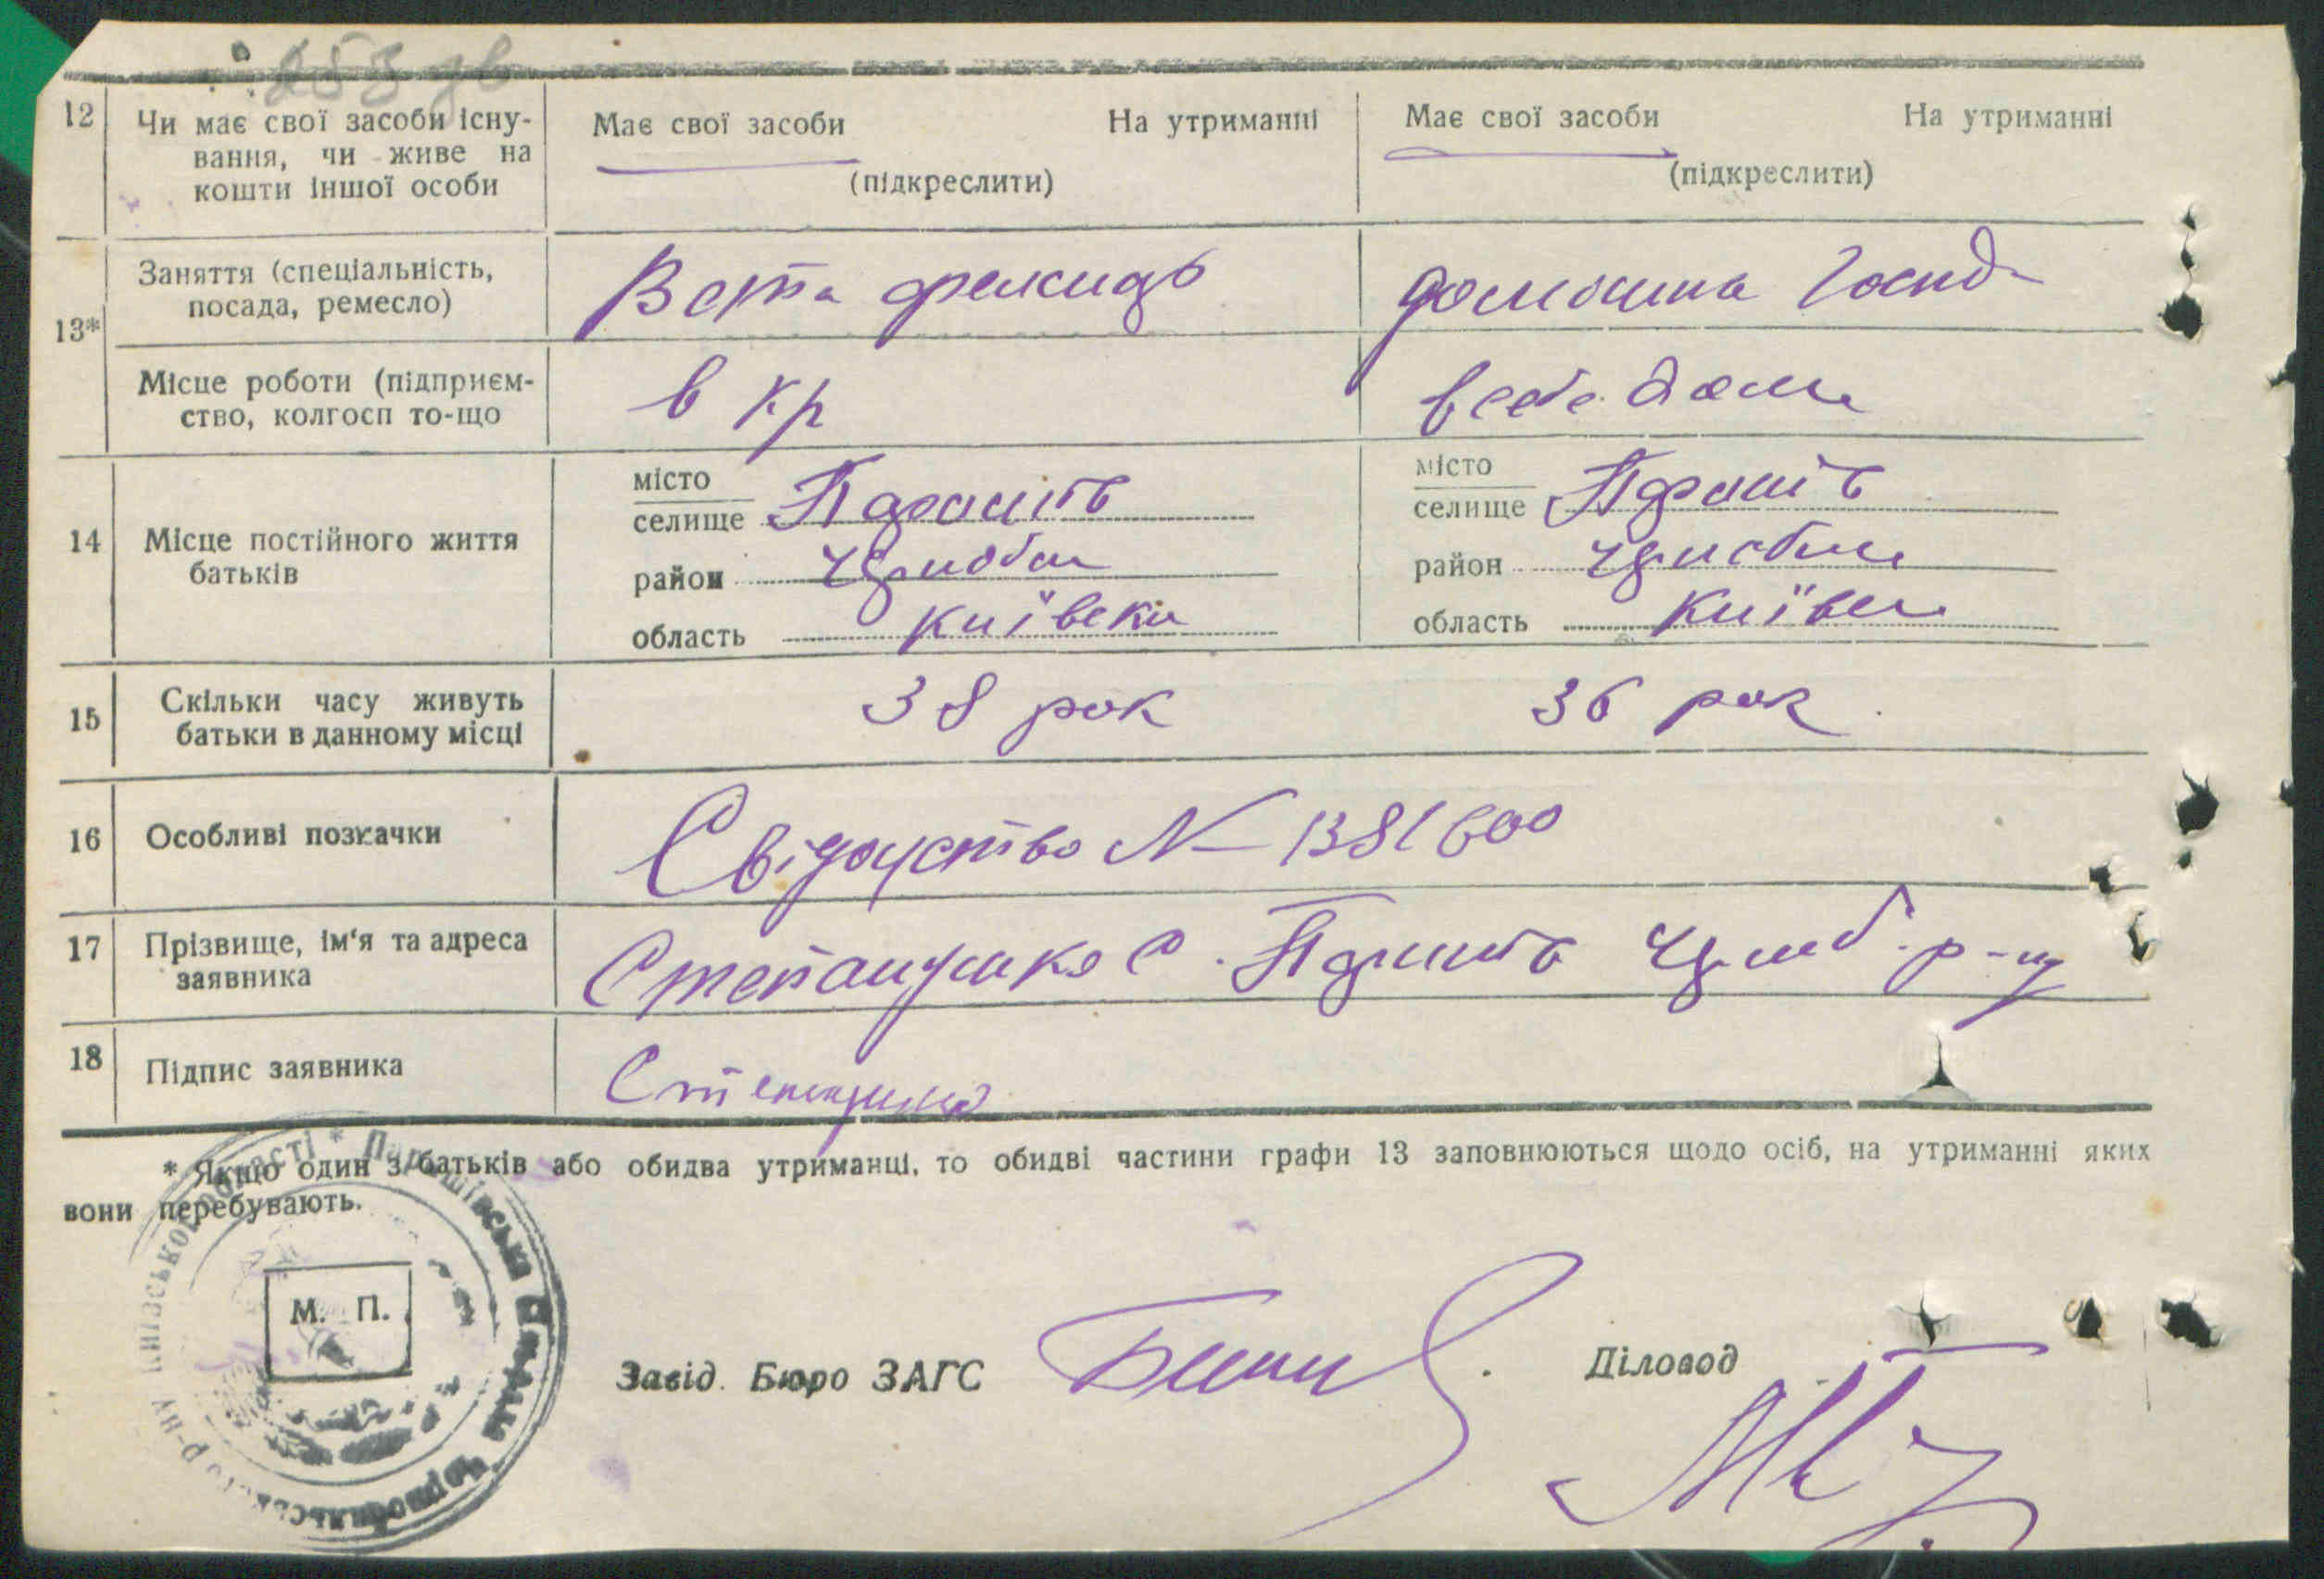 253 зв
12
Чи має свої засоби існу-
вання, чи живе на
кошти іншої особи
Має свої засоби На утриманні
(підкреслити)
Має свої засоби На утриманні
(підкреслити)
13*
Заняття (спеціальність,
посада, ремесло)
домошна Госпд
Місце роботи (підприєм-
ство, колгосп то-що
в кр
в себе дома
14
Місце постійного життя
батьків
місто
селище Парашів
район Чрнобил
область Київськи
місто
селище Парашів
район Чрнобил
область Київск
15
Скільки часу живуть
батьки в данному місці
38 рок
36 рок
16
Особливі позначки
Свідоцтво № 1381600
17
Прізвище, ім'я та адреса
заявника
Степаненко с. Парашів Чрноб. р-ну
18
Підпис заявника
* Якщо один з батьків або обидва утриманці, то обидві частини графи 13 заповнюються щодо осіб, на утриманні яких
вони перебувають.
М. П.
Парашівська Сільрада Чорнобильського р-ну Київської області *
Завід. Бюро ЗАГС
Діловод